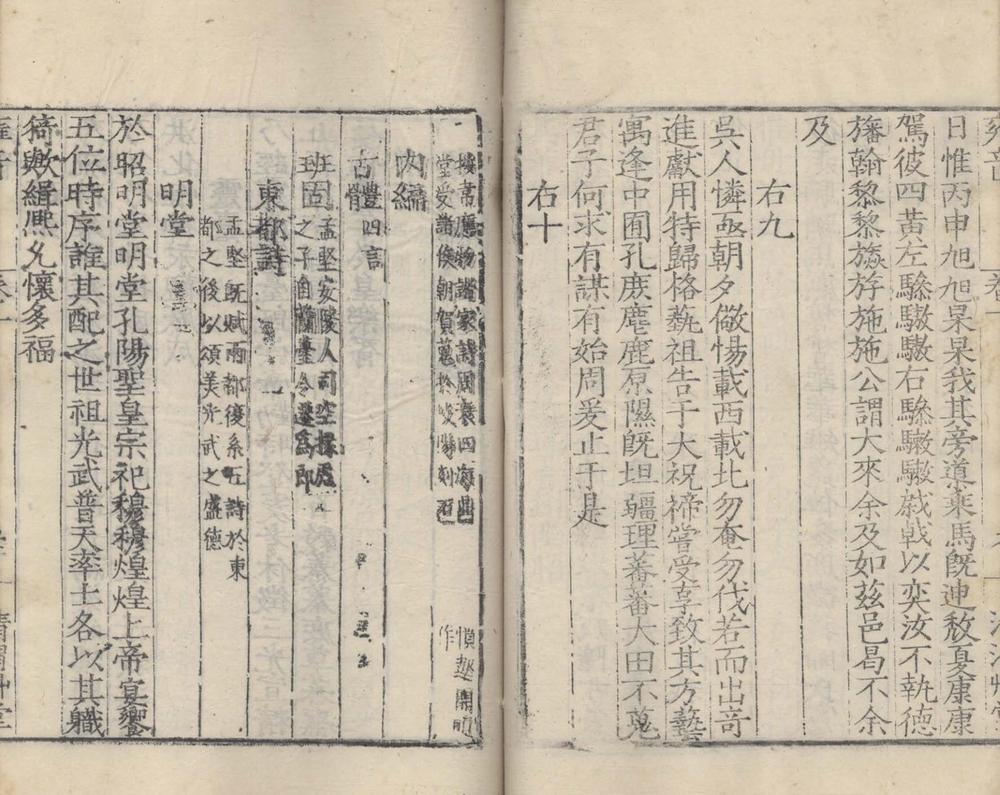 日惟丙申旭旭杲杲我其旁道乘馬旣迪敖夏康康
駕彼四黃左驂騝騝右驂騝騝戠以奕汝不執德
旛翰黎黎旗斿施施公謂大來余及如茲邑曷不余
及
右九
吳人憐亟朝夕儆惕載西載北勿奄勿伐若而出奇
進獻用特歸格埶祖告于大祝禘嘗受享致其方藝
寓逢中囿孔庶麀鹿原隰旣坦疆理蕃蕃大田不蒐
君子何求有謀有始周爰止于是
右十
堂受諸侯朝賀蒐於岐陽刻石作
內編
古體四言
班固
孟堅安陵人司空掾彪
之子自蘭臺令遷爲郎
東都詩
孟堅旣賦兩都復系五詩於東
都之後以頌美光武之盛德
明堂
於昭明堂明堂孔陽聖皇宗祀穆穆煌煌上帝宴饗
五位時序誰其配之世祖光武普天率土各以其職
猗歟緝熙允懷多福